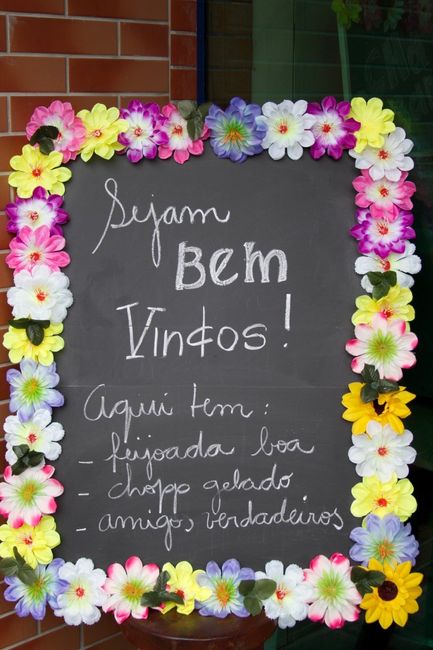 Sejam
Bem
Vindos!
Aqui tem:
- feijoada boa
- chopp gelado
- amigos verdadeiros